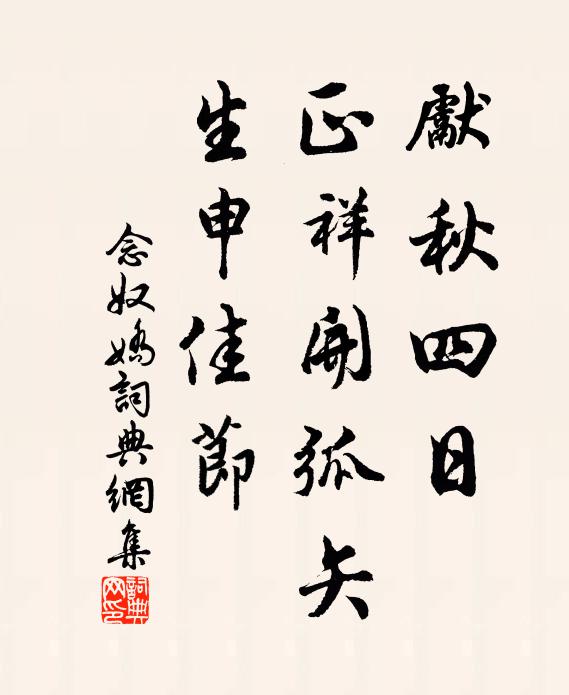 獻秋四日
正祥開弧矢
生申佳節
念奴嬌詞典網集
詞典网印